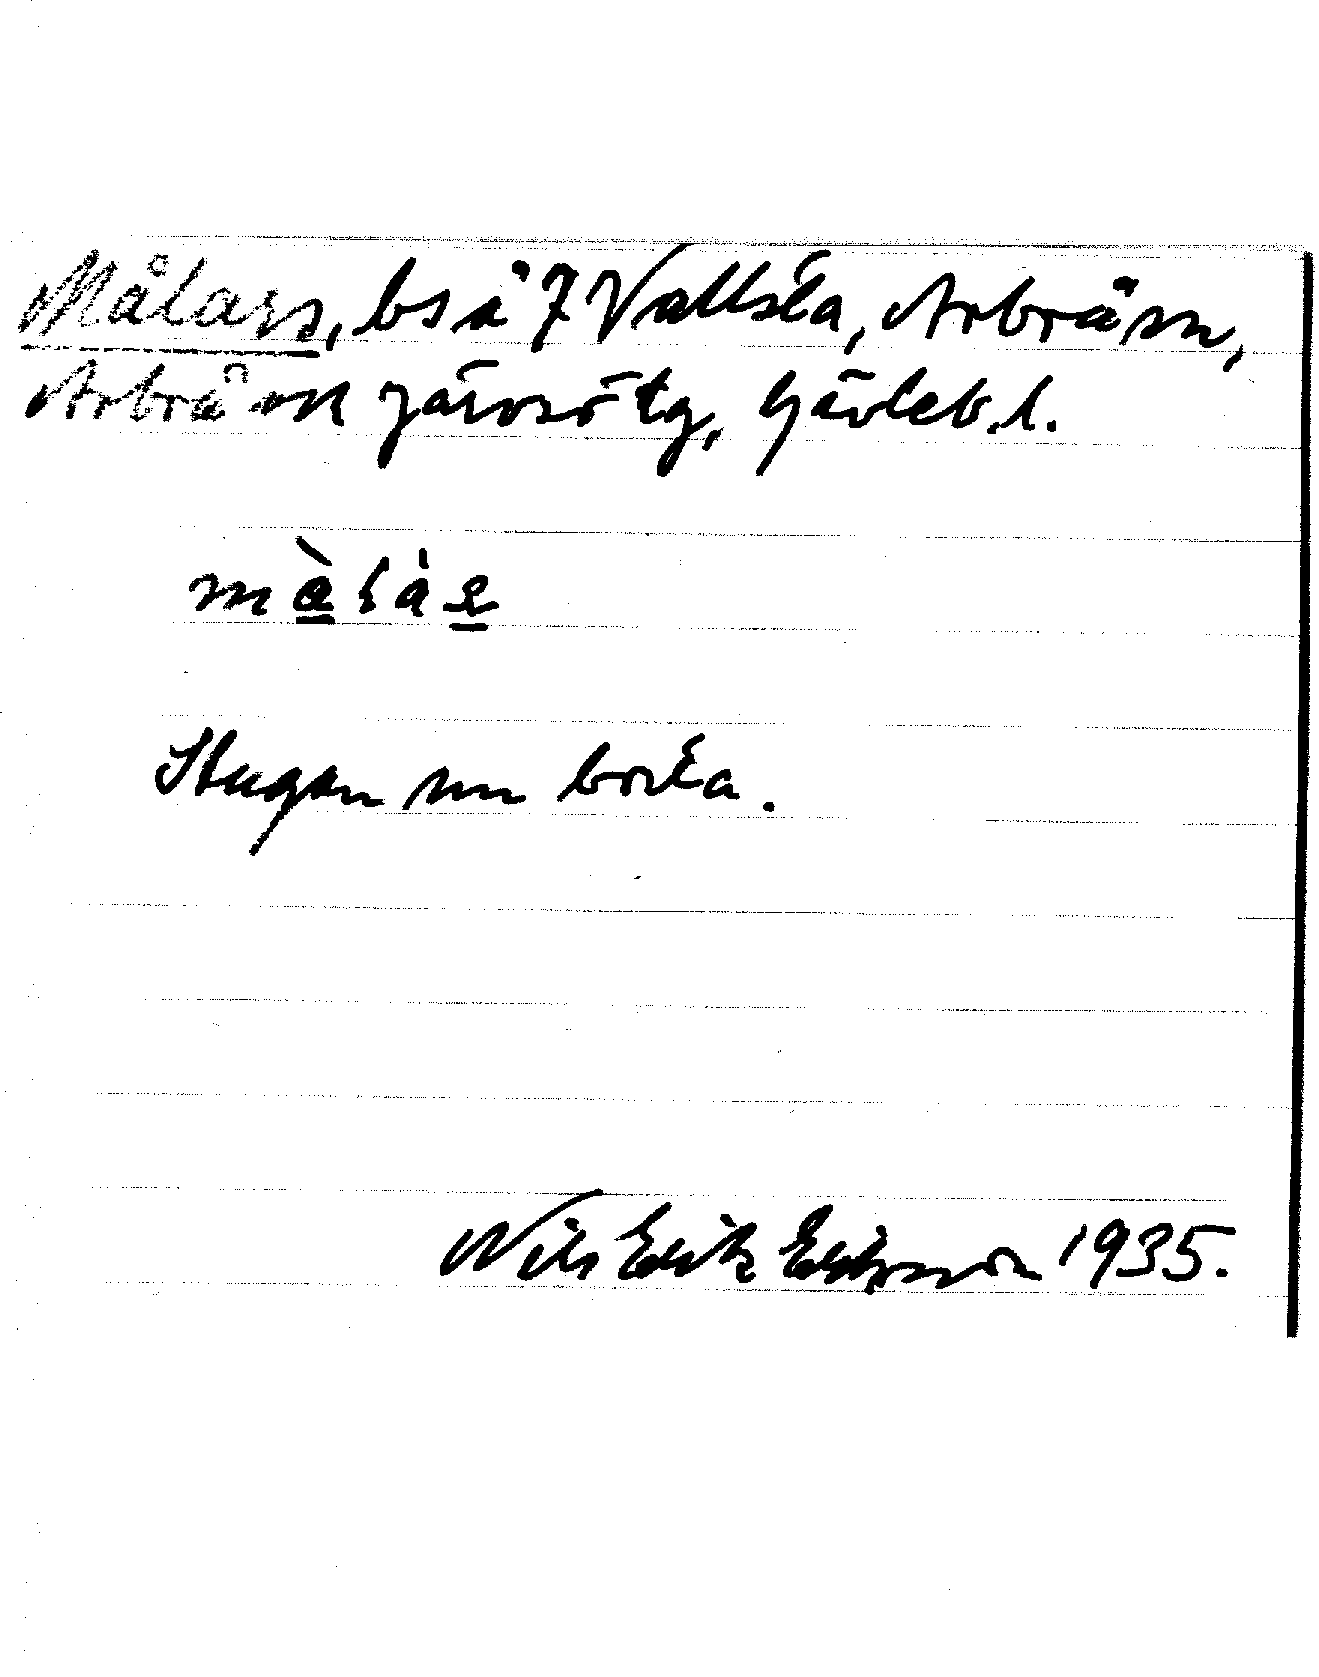 Målars, bs å 7 Vallsta, Arbrå sn,
Arbrå o Järvsö tg, Gävleb.l.
Stugan nu borta.
Nils Erik Eriksson 1935.